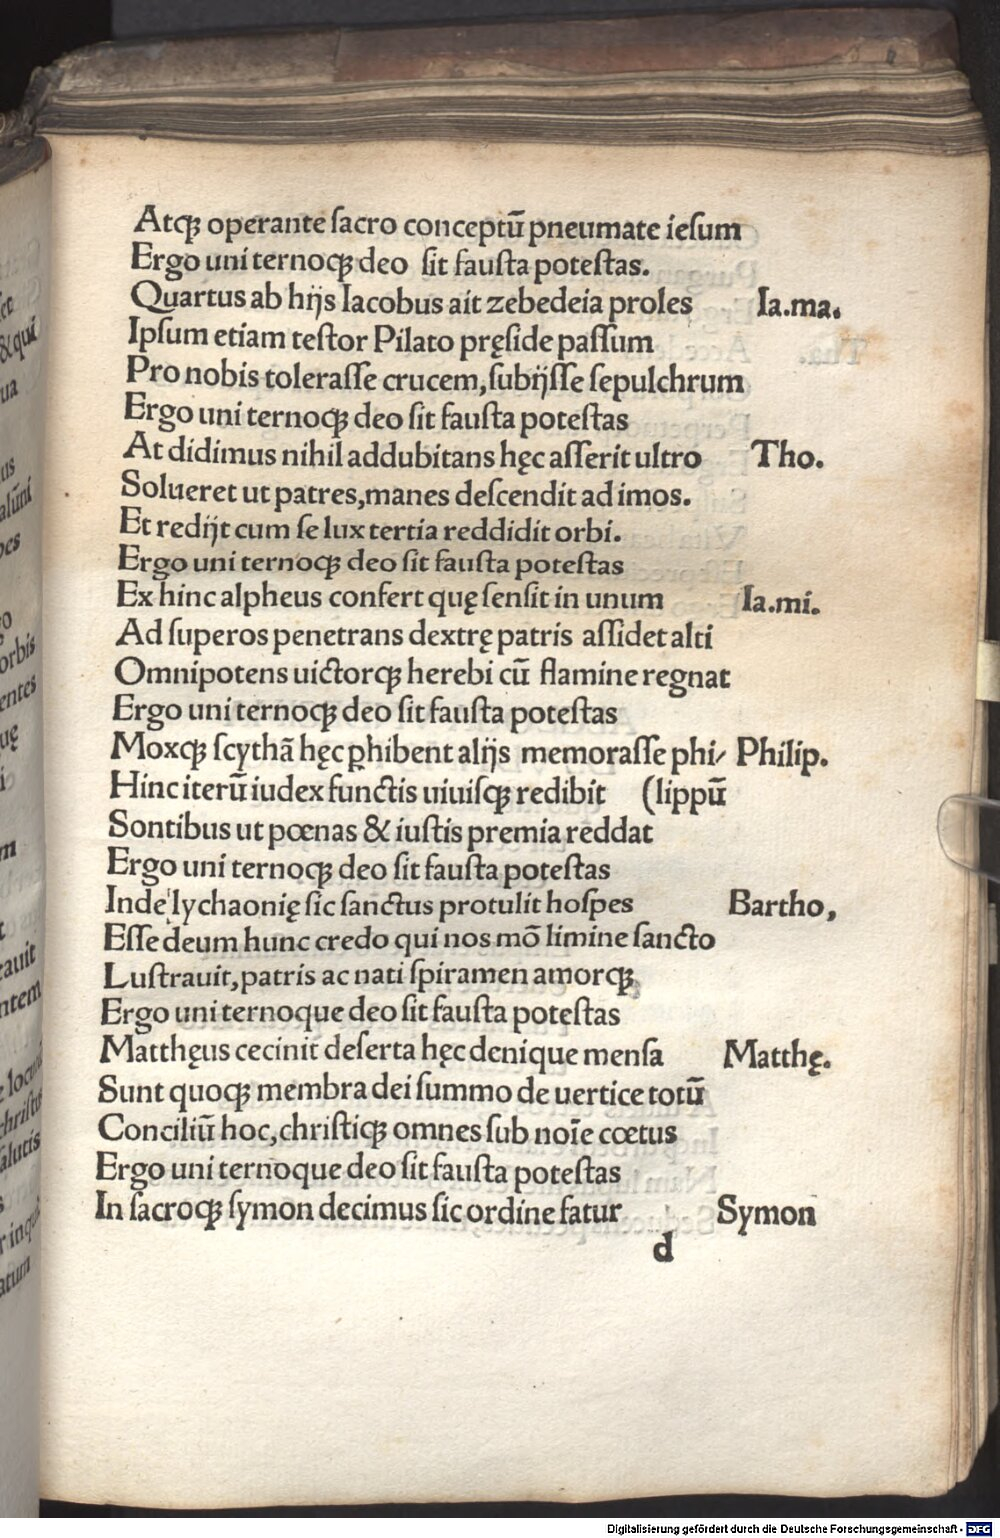 Atqꝫ operante ſacro conceptū pneumate ieſum
Ergo uni ternoqꝫ deo ſit fauſta poteſtas.
Quartus ab hijs Iacobus ait zebedeia proles Ia.ma.
Ipſum etiam teſtor Pilato pręſide paſſum
Pro nobis toleraſſe crucem, ſubijſſe ſepulchrum
Ergo uni ternoqꝫ deo ſit fauſta poteſtas
At didimus nihil addubitans hęc aſſerit ultro Tho.
Solueret ut patres, manes deſcendit ad imos.
Et redijt cum ſe lux tertia reddidit orbi.
Ergo uni ternoqꝫ deo ſit fauſta poteſtas
Ex hinc alpheus confert quę ſenſit in unum Ia.mi.
Ad ſuperos penetrans dextrę patris aſſidet alti
Omnipotens uictorqꝫ herebi cū flamine regnat
Ergo uni ternoqꝫ deo ſit fauſta poteſtas
Moxqꝫ ſcythā hęc ꝑhibent alijs memoraſſe phi⸗ Philip.
Hinc iterū iudex functis uiuiſqꝫ redibit (lippū
Sontibus ut pœnas & iuſtis premia reddat
Ergo uni ternoqꝫ deo ſit fauſta poteſtas
Inde lychaonię ſic ſanctus protulit hoſpes Bartho,
Eſſe deum hunc credo qui nos mō limine ſancto
Luſtrauit, patris ac nati ſpiramen amorqꝫ
Ergo uni ternoque deo ſit fauſta poteſtas
Matthęus cecinit deſerta hęc denique menſa Matthę.
Sunt quoqꝫ membra dei ſummo de uertice totū
Conciliū hoc, chriſtiqꝫ omnes ſub noīe cœtus
Ergo uni ternoque deo ſit fauſta poteſtas
In ſacroqꝫ ſymon decimus ſic ordine fatur Symon
d
Digitalisierung gefördert durch die Deutsche Forschungsgemeinschaft - DFG